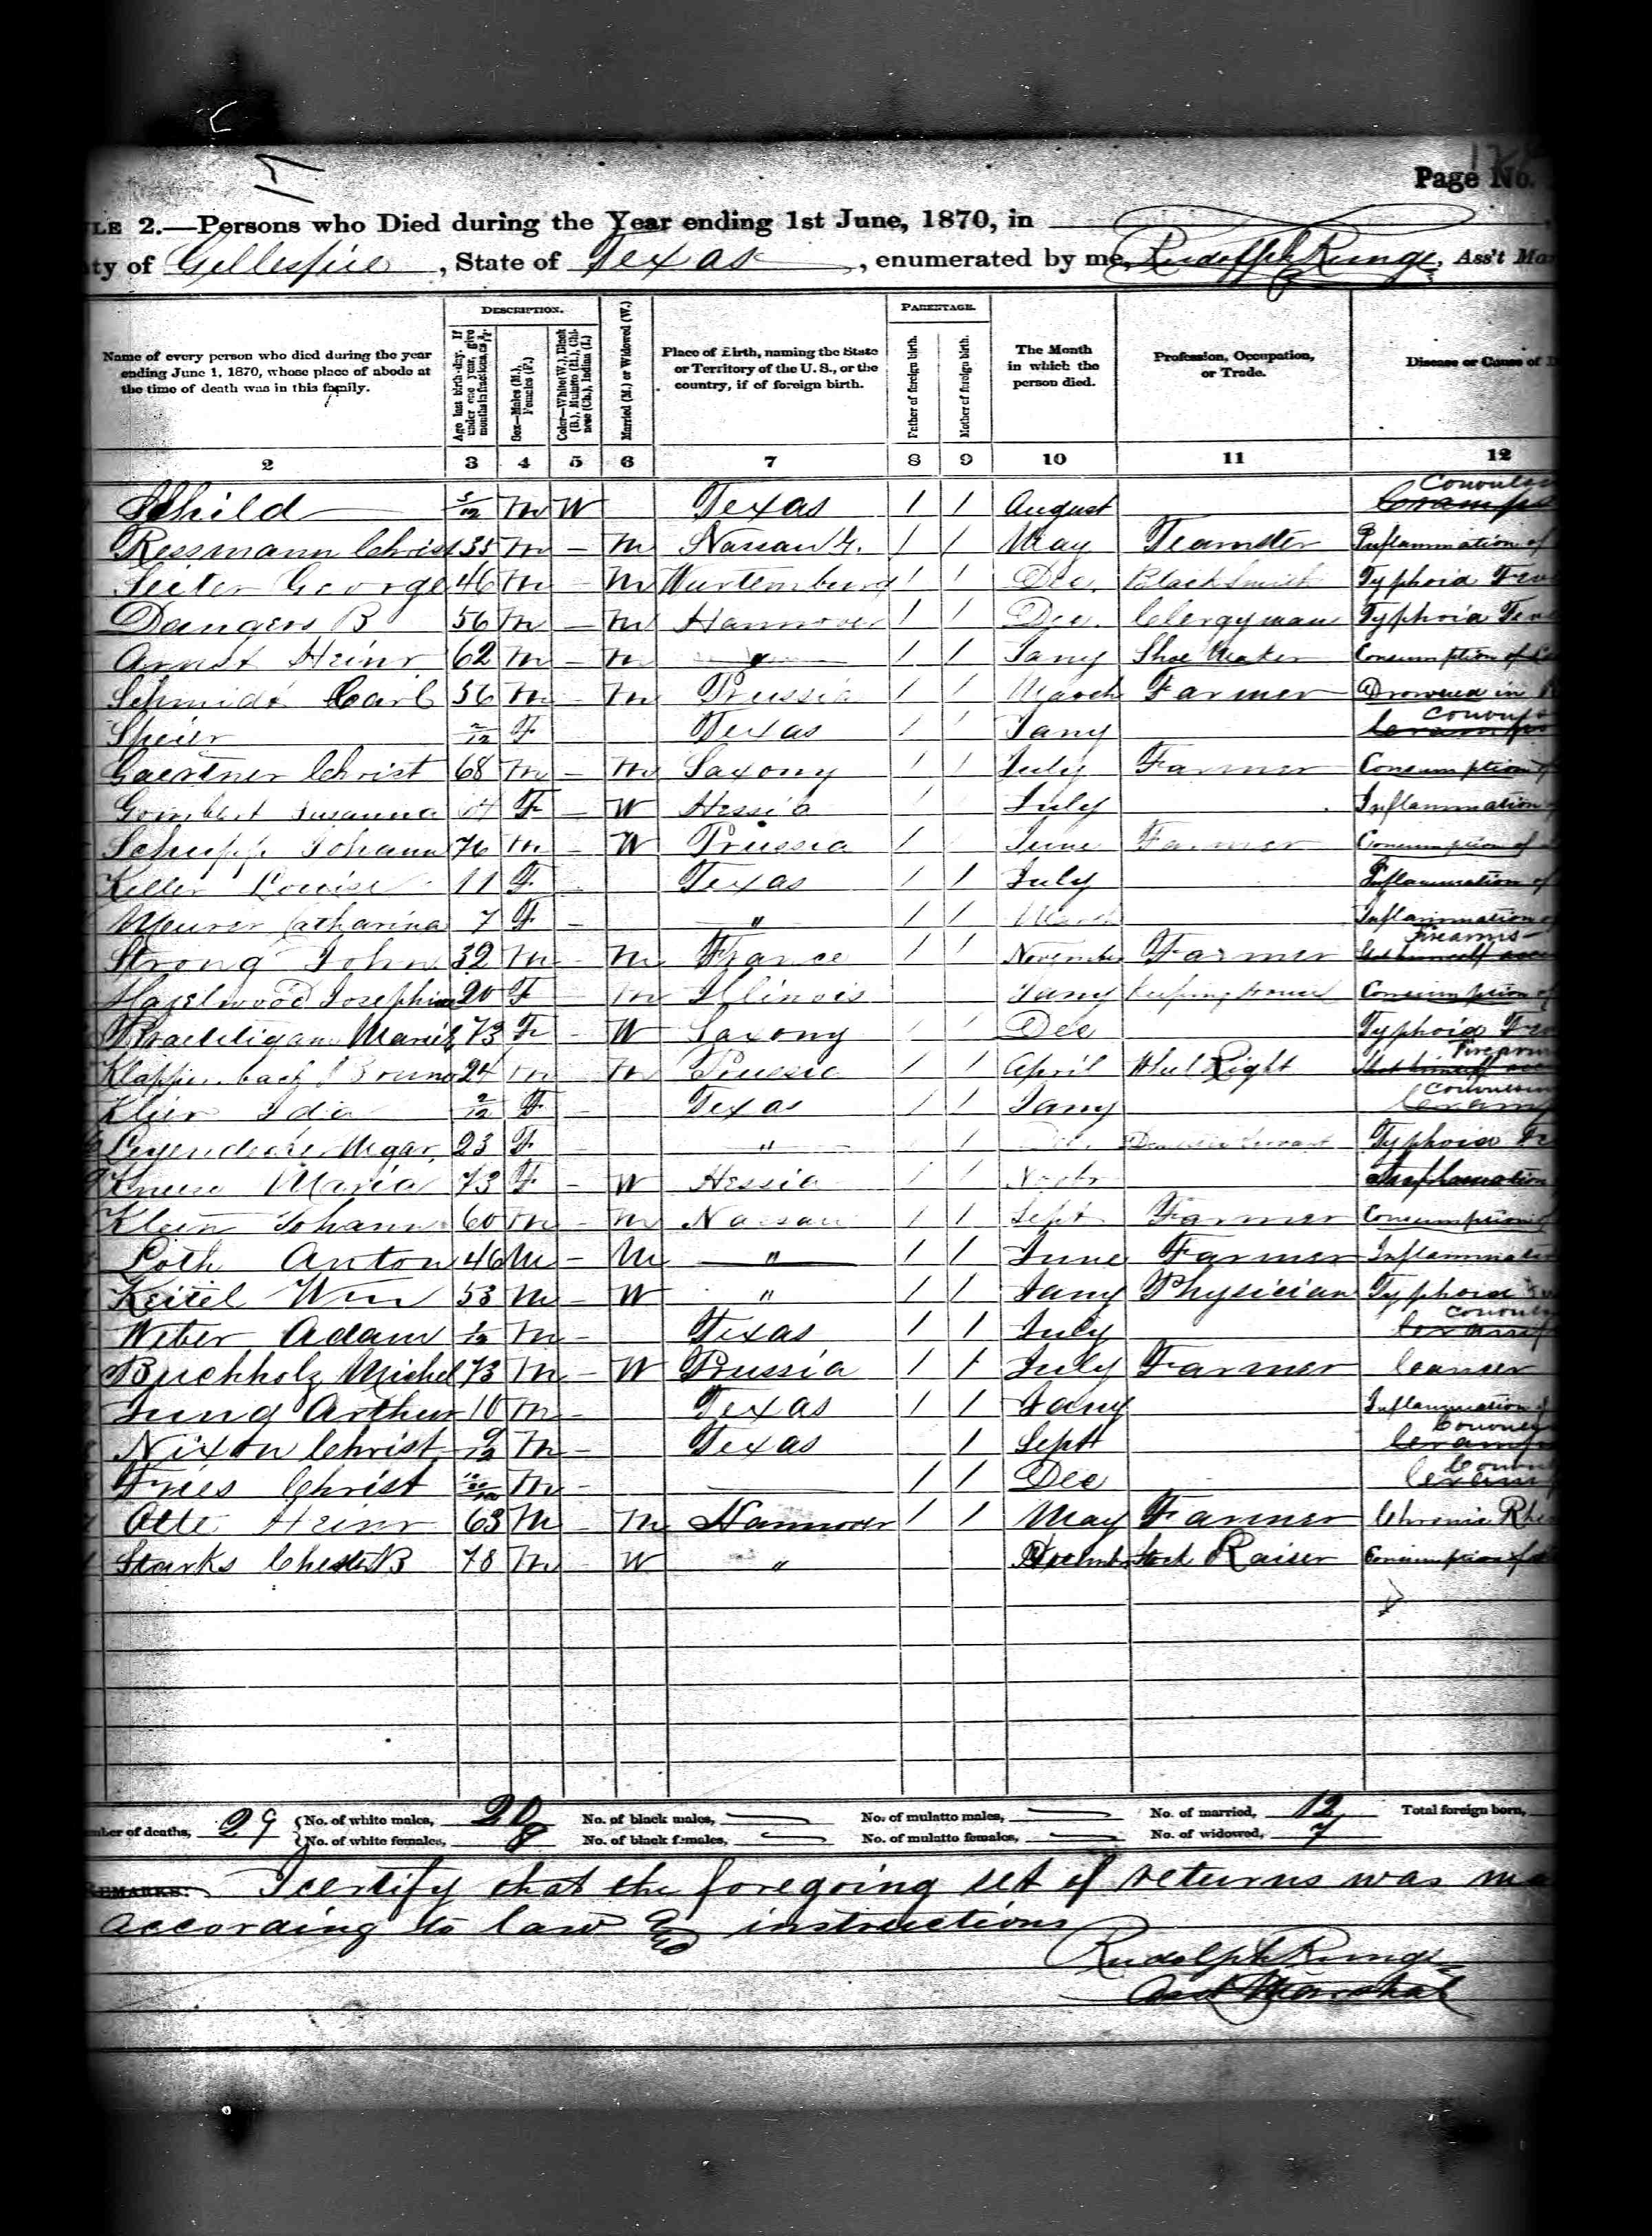 Page No.
LE 2.—Persons who Died during the Year ending 1st June, 1870, in
ty of Gillespie, State of Texas, enumerated by me, Rudolph Runge, Ass't Mar
Name of every person who died during the year ending June 1, 1870, whose place of abode at the time of death was in this family.
DESCRIPTION.
Age last birth-day. If under one year, give months in fractions, as 3/12.
Sex—Males (M.), Females (F.)
Color—White (W.), Black (B.), Mulatto (M.), Chinese (Ch.), Indian (I.)
Married (M.) or Widowed (W.)
Place of Birth, naming the State or Territory of the U. S., or the country, if of foreign birth.
PARENTAGE.
Father of foreign birth.
Mother of foreign birth.
The Month in which the person died.
Profession, Occupation, or Trade.
Disease or Cause of D
2 3 4 5 6 7 8 9 10 11 12
Schild 5/12 M W Texas 1 1 August Cramps Convuls
Ressmann Christ 35 M – M Nassau G. 1 1 May Teamster Inflammation of
George 46 M – M Wurtemburg 1 1 Dec. Blacksmith Typhoid Feve
Dangers B 56 M – M Hannover 1 1 Dec. Clergyman Typhoid Feve
Arnst Heinr 62 M – M " 1 1 Jany Shoe Maker Consumption of
Schmidt Carl 56 M – M Prussia 1 1 March Farmer Drowned in
Speier 2/12 F Texas 1 1 Jany Cramps Convuls
Gaertner Christ 68 M – M Saxony 1 1 July Farmer Consumption of
Susanna F – W Hessia 1 July Inflammation of
Schupp Johann 76 M – W Prussia 1 June Farmer Consumption of
Keller Louise 11 F Texas 1 1 July Inflammation of
Meurer Catharina 7 F – " 1 1 March Inflammation of
Strong John 32 M – M France 1 1 November Farmer Shot himself acc Firearms
Hazelwood Josephine 20 F – M Illinois Jany Keeping House Consumption of
73 F – W Saxony 1 1 Dec Typhoid Fev
Klappenbach Bruno 24 M – M Prussia 1 1 April Wheel Right Shot himself acc Firearms
Klier Ida 2/12 F – Texas 1 1 Jany Cramp Convulsion
Leyendecke Margar. 23 F – " 1 1 Domestic Servant Typhoid Fe
Maria 73 F – W Hessia 1 1 Inflammation
Klein Johann 60 M – M Nassau 1 1 Sept. Farmer Consumption of
Loth Anton 46 M – M " 1 1 June Farmer Inflammation
Keitel Wm 53 M – W " 1 1 Jany Physician Typhoid
Weber Adam 1/12 M – Texas 1 1 July Cramp Convuls
Buchholz Michel 73 M – W Prussia 1 1 July Farmer Cancer
Jung Arthur 10 M – Texas 1 1 Jany Inflammation of
Nixon Christ 9/12 M – Texas 1 Sept Cramp Convuls
Fries Christ M – 1 1 Dec Cramp Convul
Atte Heinr 63 M – M Hannover 1 1 May Farmer Chronic Rhe
Starks Chester B 78 M – W " December Stock Raiser Consumption of
mber of deaths, 29 No. of white males, 20 No. of black males, No. of mulatto males, No. of married, 12 Total foreign born,
No. of white females, 8 No. of black females, No. of mulatto females, No. of widowed, 7
REMARKS: I certify that the foregoing set of returns was ma
according to law & instructions
Rudolph Runge
Asst Marshal